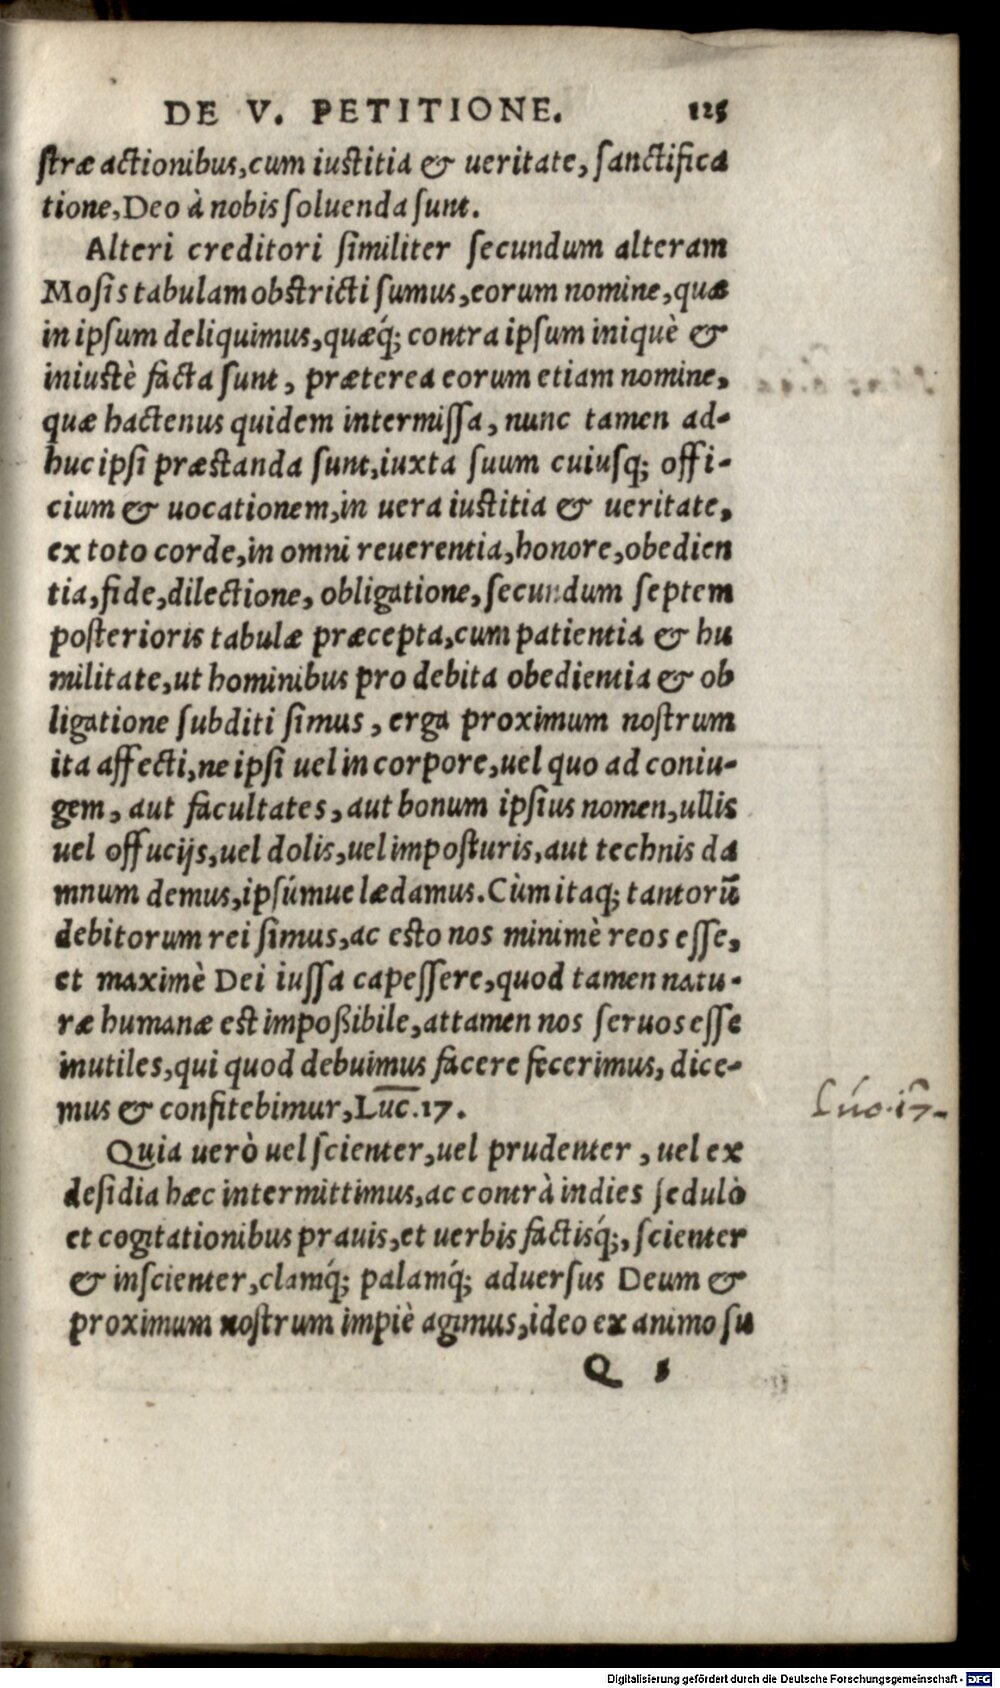 DE V. PETITIONE. 125
ſtræ actionibus,cum iuſtitia & ueritate, ſanctifica
tione,Deo à nobis ſoluenda ſunt.
Alteri creditori ſimiliter ſecundum alteram
Moſis tabulam obſtricti ſumus,eorum nomine,quæ
in ipſum deliquimus,quæq́; contra ipſum iniquè &
iniuſtè facta ſunt, præterea eorum etiam nomine,
quæ hactenus quidem intermiſſa, nunc tamen ad-
huc ipſi præſtanda ſunt,iuxta ſuum cuiuſq; offi-
cium & uocationem,in uera iuſtitia & ueritate,
ex toto corde,in omni reuerentia,honore,obedien
tia,fide,dilectione, obligatione,ſecundum ſeptem
poſterioris tabulæ præcepta,cum patientia & hu
militate,ut hominibus pro debita obedientia & ob
ligatione ſubditi ſimus, erga proximum noſtrum
ita affecti,ne ipſi uel in corpore,uel quo ad coniu-
gem, aut facultates, aut bonum ipſius nomen,ullis
uel offucijs,uel dolis,uel impoſturis,aut technis da
mnum demus,ipſúmue lædamus. Cùm itaq; tantorū
debitorum rei ſimus,ac eſto nos minimè reos eſſe,
et maximè Dei iuſſa capeſſere,quod tamen natu-
ræ humanæ eſt impoßibile,attamen nos ſeruos eſſe
inutiles,qui quod debuimus facere fecerimus, dice-
mus & confitebimur,Luc.17.
Luc.17-
Quia uerò uel ſcienter,uel prudenter, uel ex
deſidia hæc intermittimus,ac contrà indies ſedulò
et cogitationibus prauis,et uerbis factisq́;, ſcienter
& inſcienter,clamq́; palamq́; aduerſus Deum &
proximum noſtrum impiè agimus,ideo ex animo ſu
Q 5
Digitalisierung gefördert durch die Deutsche Forschungsgemeinschaft - DFG